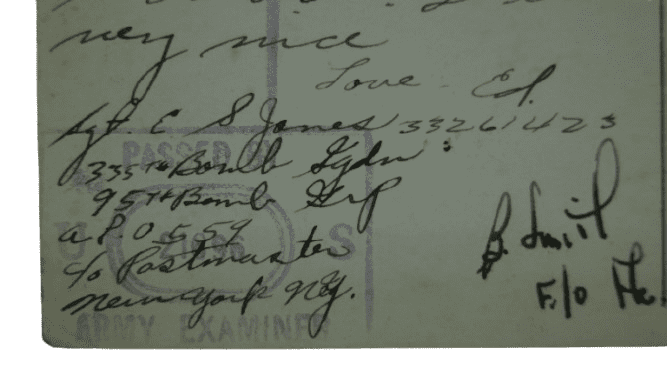 very nice
Love - Ed.
Sgt. E S Jones 33261423
335th Bomb Sqdn :
95th Bomb Grp
A P O 559
c/o Postmaster
New York N.Y.
PASSED BY
U S
ARMY EXAMINER
B. Smith
F/O